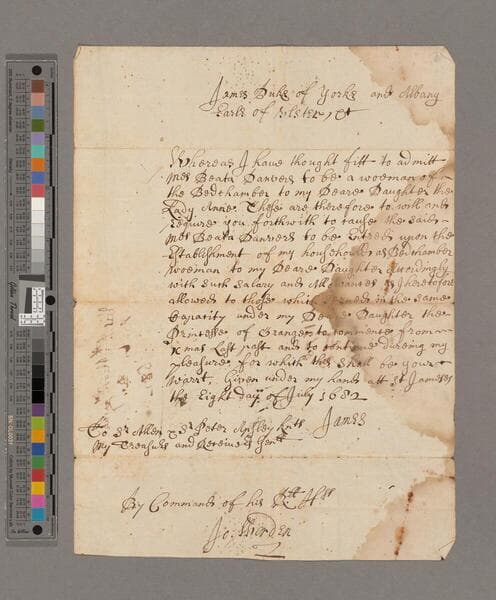 James Duke of Yorke and Albany
Earle of Ulster, &c
Whereas I have thought fitt to admitt
Mrs Beata Danvers to be a wooman of
the Bedchamber to my Deare Daughter the
Lady Anne. These are therefore to will and
require you forthwith to cause the said
Mrs Beata Danvers to be Entred upon the
Establishment of my household as Bedchamber
Wooman to my Deare Daughter accordingly
with Such Salary and Allowances as heretofore
allowed to those which served in the same
Capacity under my Deare Daughter the
Princesse of Orange, to commence from
Xmas Last past and to continue dureing my
pleasure for which this shall be your
Warrt. Given under my hand att St Jameses
the Eight day of July 1682
James
To Sr Allen & Sr Peter Apsley Knts
My Treasurer and Receiver Genll
By Command of his R H
Jo: Werden